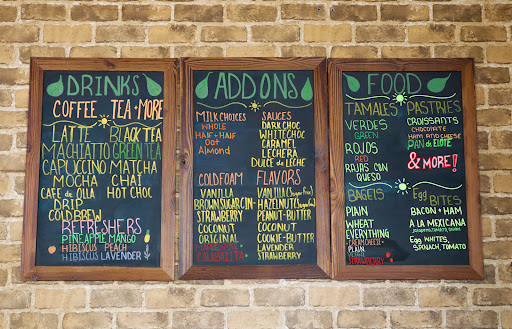 DRINKS
COFFEE TEA + MORE
LATTE BLACK TEA
MACHIATTO GREEN TEA
CAPUCCINO MATCHA
MOCHA CHAI
CAFE de OLLA HOT CHOC
DRIP
COLD BREW
REFRESHERS
PINEAPPLE MANGO
HIBISCUS PEACH
HIBISCUS LAVENDER
ADD ONS
MILK CHOICES
WHOLE
HALF + HALF
Oat
Almond
SAUCES
DARK CHOC
WHITE CHOC
CARAMEL
LECHERA
DULCE de LECHE
COLD FOAM
VANILLA
BROWN SUGAR CIN
STRAWBERRY
COCONUT
ORIGINAL
CALABACITA
FLAVORS
VANILLA (Sugar Free)
HAZELNUT (Sugar Free)
PEANUT-BUTTER
COCONUT
COOKIE-BUTTER
LAVENDER
STRAWBERRY
FOOD
TAMALES
VERDES
GREEN
ROJOS
RED
RAJAS CON
QUESO
PASTRIES
CROISSANTS
CHOCOLATE
HAM AND CHEESE
PAN de ELOTE
& MORE!
BAGELS
PLAIN
WHEAT
EVERYTHING
CREAM CHEESE
PLAIN
STRAWBERRY
Egg
BITES
BACON + HAM
A LA MEXICANA
EGG WHITES,
SPINACH, TOMATO